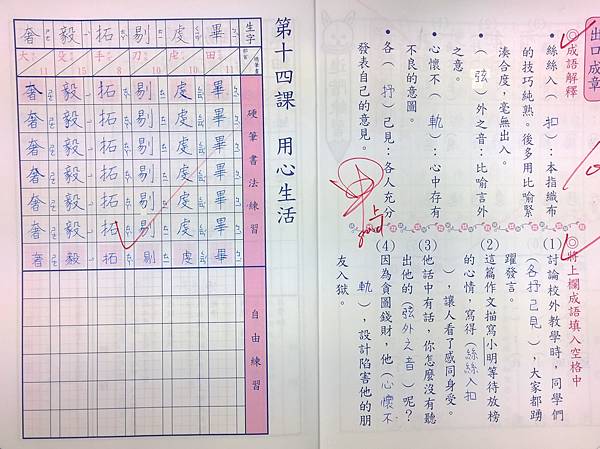 出口成章
◎成語解釋
絲絲入(扣):本指織布
的技巧純熟。後多用比喻緊
湊合度,毫無出入。
(弦)外之音:比喻言外
之意。
心懷不(軌):心中存有
不良的意圖。
各(抒)己見:各人充分
發表自己的意見。
◎將上欄成語填入空格中
(1)討論校外教學時,同學們
(各抒己見),大家都踴
躍發言。
(2)這篇作文描寫小明等待放榜
的心情,寫得(絲絲入扣
),讓人看了感同身受。
(3)他話中有話,你怎麼沒有聽
出他的(弦外之音)呢?
(4)因為貪圖錢財,他(心懷不
軌),設計陷害他的朋
友入獄。
第十四課 用心生活
生字 部首 總筆畫 硬筆書法練習 自由練習
畢 田 11 畢畢畢畢畢畢畢
虔 虍 10 虔虔虔虔虔虔虔
剔 刀 10 剔剔剔剔剔剔剔
拓 手 8 拓拓拓拓拓拓拓
毅 殳 15 毅毅毅毅毅毅毅
奢 大 11 奢奢奢奢奢奢奢